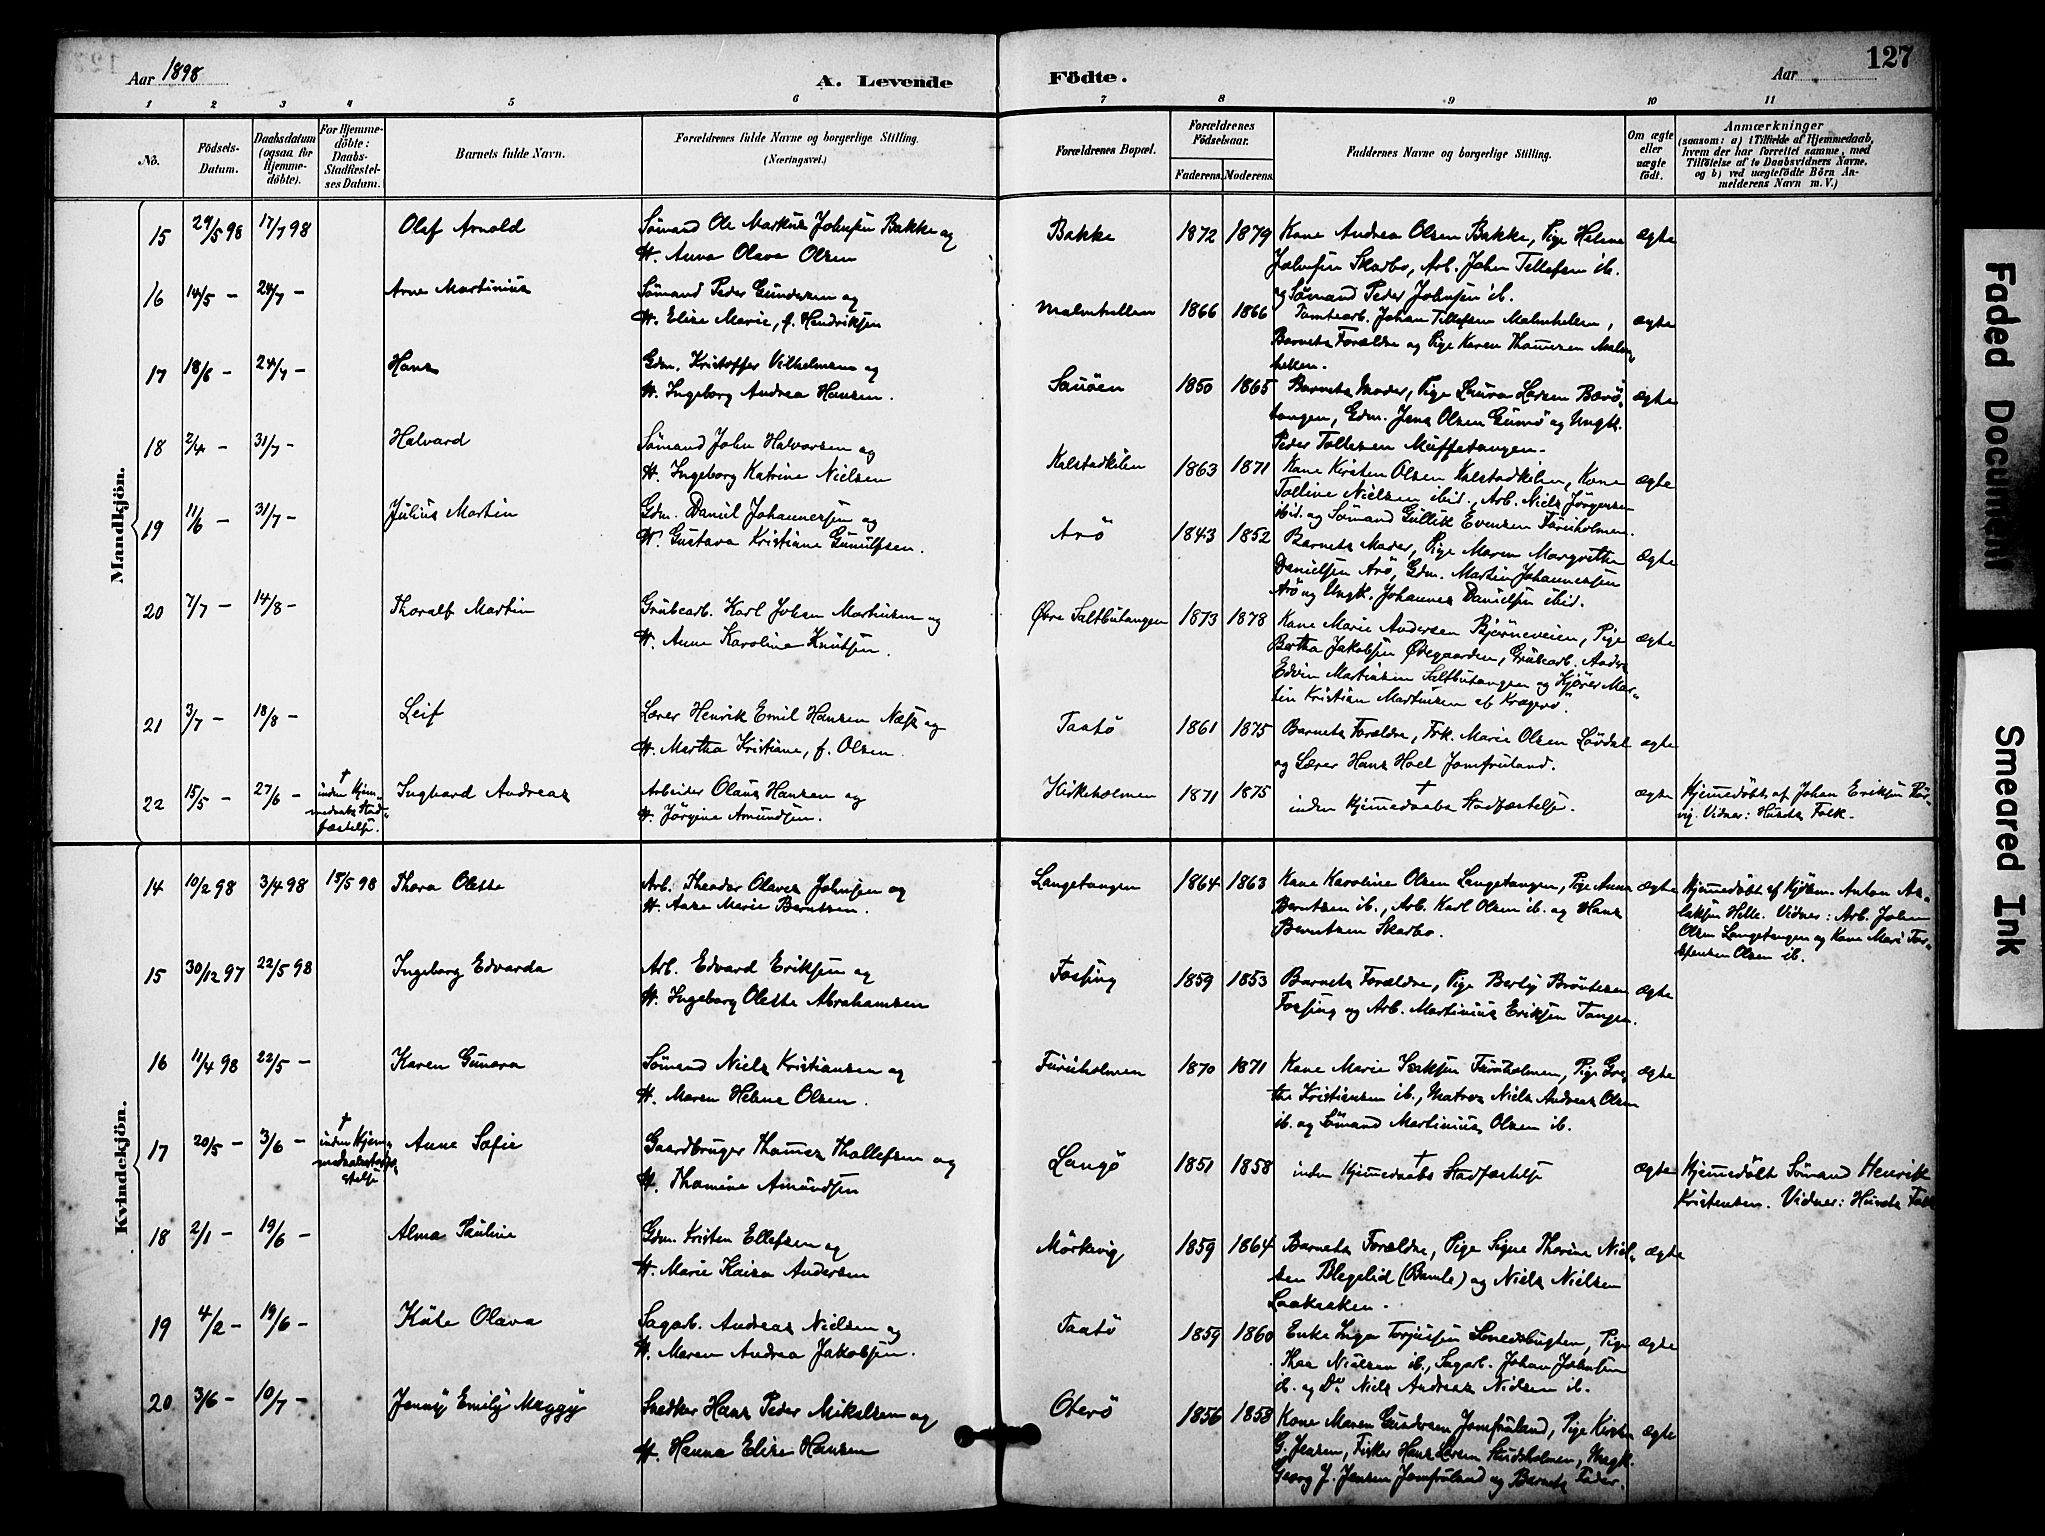 127
Aar 1898
A. Levende Födte.
Aar
1 2 3 4 5 6 7 8 9 10 11
No.
Födsels-Datum.
Daabsdatum (ogsaa for Hjemme-döbte).
For Hjemme-döbte: Daabs-Stadfæstel-ses Datum.
Barnets fulde Navn.
Forældrenes fulde Navne og borgerlige Stilling.
(Næringsvei.)
Forældrenes Bopæl.
Forældrenes Födselsaar.
Faderens. Moderens.
Faddernes Navne og borgerlige Stilling.
Om ægte eller uægte födt.
Anmærkninger
(saasom: a) i Tilfælde af Hjemmedaab,
hvem der har forrettet samme, med
Tilföielse af to Daabsvidners Navne,
og b) ved uægtefödte Börn An-
melderens Navn m. V.)
Mandkjön.
15 29/5 98 17/7 98 Olaf Arnold Sømand Ole Markus Johnsen Bakke og Bakke 1872 1879 Kone Andrea Olsen Bakke, Pige Helene ægte
H. Anna Olava Olsen
Johnsen Skarbo, Arb. John Tellefsen ib.
og Sømand Peder Johnsen ib.
16 14/5 – 24/7 – Arne Martinius Sømand Peder Gundersen og Malmhellen 1866 1866 Tomtearb. Johan Tellefsen Malmhellen, ægte
H. Elise Marie, f. Hendriksen
Barnets Forældre og Pige Karen Thomesen Malm-
hellen.
17 18/6 – 24/7 – Hans Gdm. Kristoffer Vilhelmsen og Sauöen 1850 1865 Barnets Moder, Pige Laura Larsen Barö- ægte
H. Ingeborg Andrea Hansen.
tangen, Gdm. Jens Olsen Gumö og Ungk.
Peder Tollefsen Muffetangen.
18 2/4 – 31/7 – Halvard Sömand John Halvorsen og Kalstadkilen 1863 1871 Kone Kirsten Olsen Kalstadkilen, Kone ægte
H. Ingeborg Katrine Nielsen
Tolline Nielsen ibid., Arb. Niels Jörgensen
ibid. og Sømand Gullik Evensen Furuholmen.
19 11/6 – 31/7 – Julius Martin Gdm. Daniel Johannessen og Arö 1843 1852 Barnets Moder, Pige Maren Margrethe ægte
H. Gustava Kristiane Gunulfsen.
Danielsen Arö, Gdm. Martin Johannessen
Arö og Ungk. Johannes Danielsen ibid.
20 7/7 – 14/8 – Thoralf Martin Grubearb. Karl Johan Martinsen og Øvre Saltbutangen 1873 1878 Kone Marie Andersen Bjørneveien, Pige ægte
H. Anne Karoline Knutsen.
Bertha Jakobsen Ødegaarden, Grubearb. Anders
Edvin Martinsen Saltbutangen og Kjører Mar-
tin Kristian Martinsen af Kragerø.
21 3/7 – 18/8 – Leif Lærer Henrik Emil Hansen Næss og Taatö 1861 1875 Barnets Forældre, Frk. Marie Olsen Løvdal ægte
H. Martha Kristiane, f. Olsen.
og Lærer Hans Hoel Jomfruland.
22 15/5 – 27/6 – † inden Hjem- medaabs Stad- fæstelse. Ingvard Andreas Arbeider Olaus Hansen og Kirkeholmen 1871 1875 † inden Hjemmedaabs Stadfæstelse. ægte Hjemmedöbt af Johan Eriksen Rör-
H. Jørgine Amundsen.
vig. Vidner: Husets Folk.
Kvindekjön.
14 10/2 98 3/4 98 15/5 98 Thora Olette Arb. Theodor Olaves Johnsen og Langetangen 1864 1863 Kone Karoline Olsen Langetangen, Pige Anna ægte Hjemmedöbt af Kjöbm. Anton As-
H. Aase Marie Berntsen.
Berntsen ib., Arb. Karl Olsen ib. og Hans
Berntsen Skarbo.
laksen Helle. Vidner: Arb. Johan
Olsen Langetangen og Kone Mari Tor-
stensen Olsen ib.
15 30/12 97 22/5 98 Ingeborg Edvarda Arb. Edvard Eriksen og Fossing 1859 1853 Barnets Forældre, Pige Berthy Bröntesen ægte
H. Ingeborg Olette Abrahamsen
Fossing og Arb. Martinius Eriksen Tangen.
16 11/4 98 22/5 – Karen Gunara Sömand Niels Kristiansen og Furuholmen 1870 1871 Kone Marie Isaksen Furuholmen, Pige Gre- ægte
H. Maren Helene Olsen.
the Kristiansen ib., Matros Niels Andreas Olsen
ib. og Sömand Martinius Olsen ib.
17 20/5 – 3/6 – † inden Hjem- medaabsstadfæ- stelse Anne Sofie Gaardbruger Thomes Thollefsen og Langö 1851 1858 † inden Hjemmedaabs Stadfæstelse ægte Hjemmedöbt Sömand Henrik
H. Thomine Amundsen
Kristensen. Vidner: Husets Folk
18 2/1 – 19/6 – Alma Pauline Gdm. Kristen Ellefsen og Mörkevig 1859 1864 Barnets Forældre, Pige Signe Thorine Niel- ægte
H. Marie Kaisa Andersen
sen Blegelid (Bamle) og Niels Nielsen
Laakaaken.
19 4/2 – 19/6 – Käte Olava Sagarb. Andreas Nielsen og Taatö 1859 1860 Enke Inger Torjussen Smedsbugten, Pige ægte
H. Maren Andrea Jakobsen.
Thea Nielsen ib., Sagarb. Johan Johnsen
ib. og Do. Niels Andreas Nielsen ib.
20 3/6 – 10/7 – Jenny Emily Meggy Snedker Hans Peder Mikalsen og Oterö 1856 1858 Kone Maren Gundersen Jomfruland, Pige Kirsten ægte
H. Hanna Elise Hansen
G. Jensen, Fisker Hans Larsen Skudsholmen, Ungk.
Georg J. Jensen Jomfruland og Barnets Fader.
Faded Document
Smeared Ink